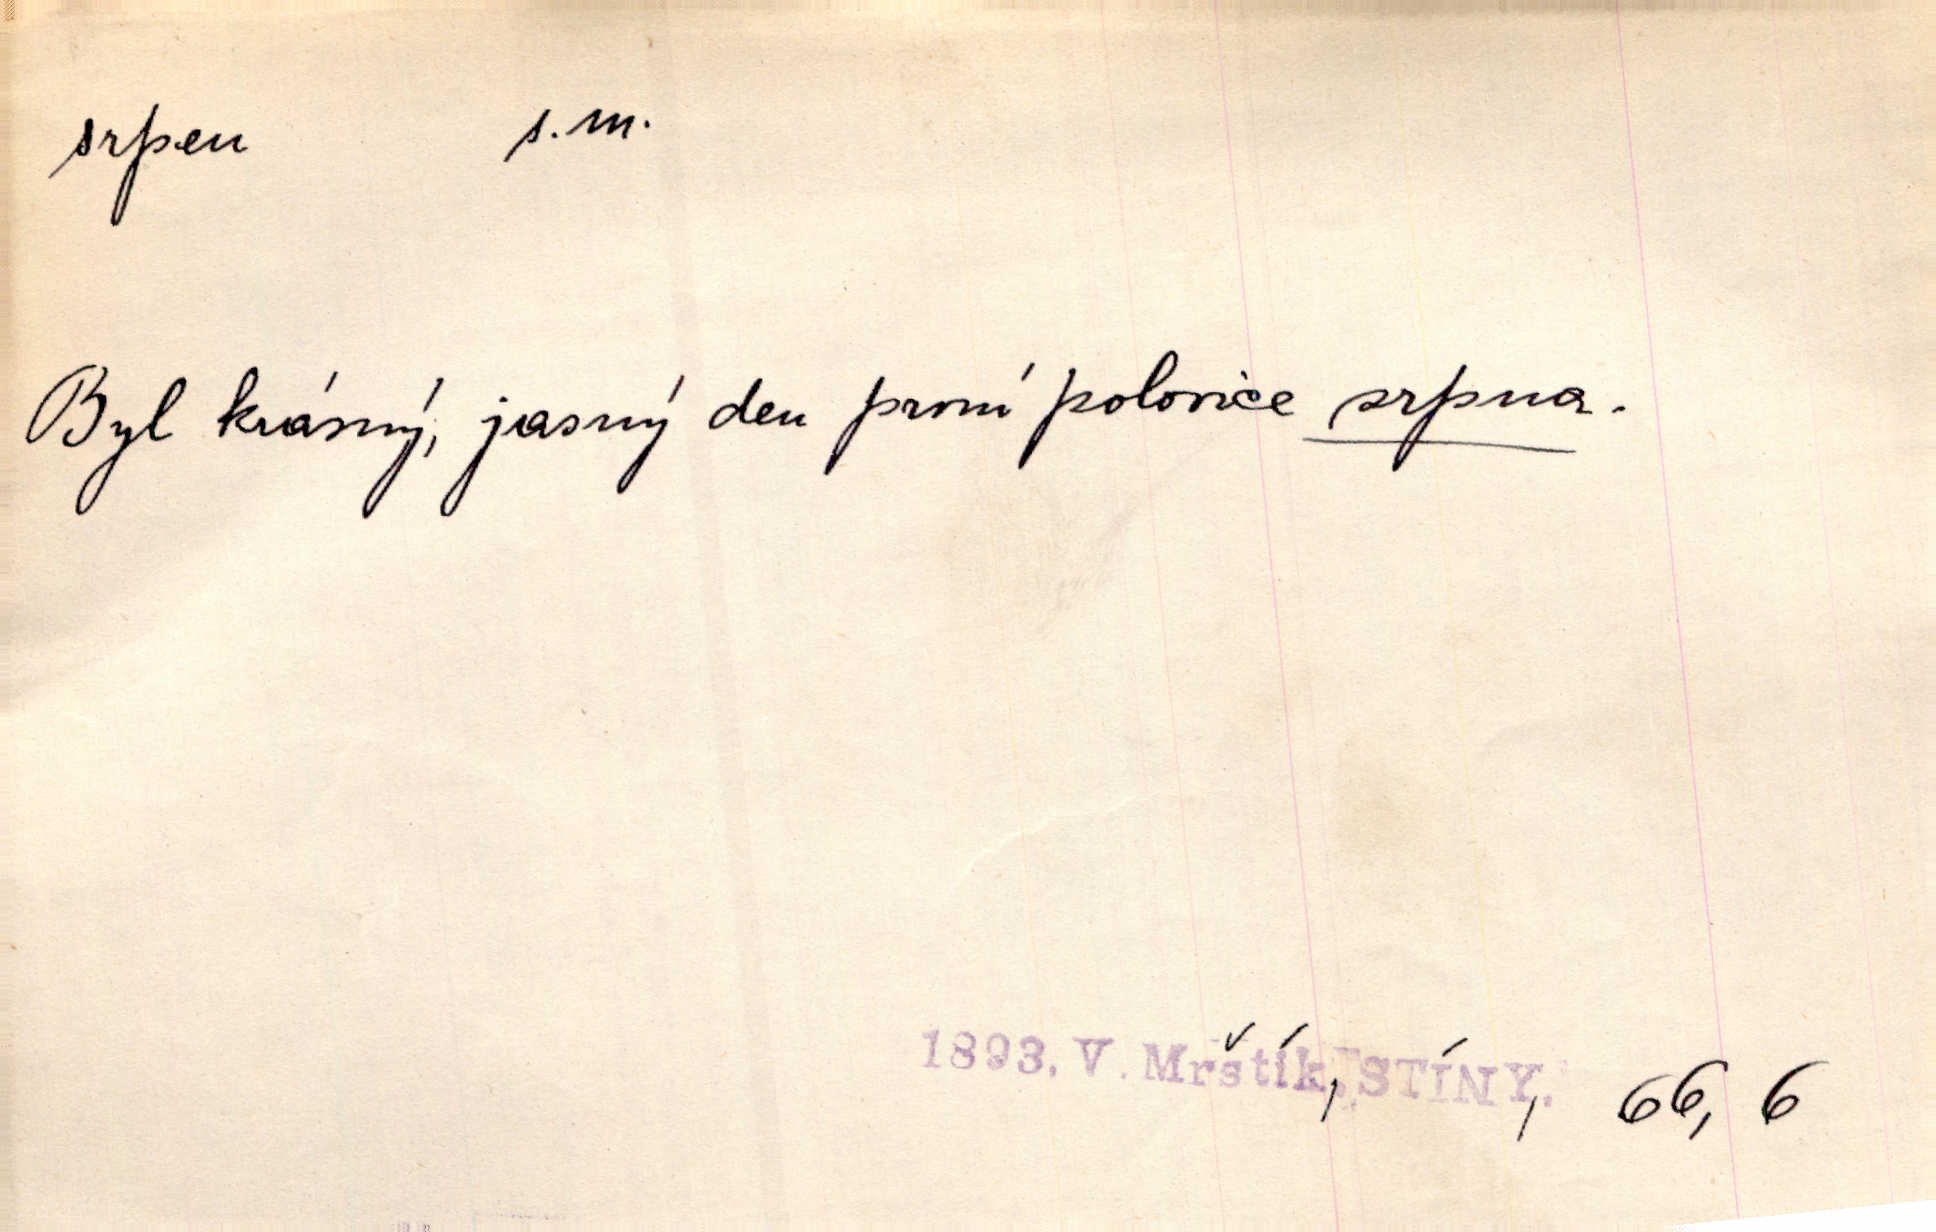 srpen s.m.
Byl krásný, jasný den první polovice srpna.
1893. V. Mrštík, STÍNY, 66, 6